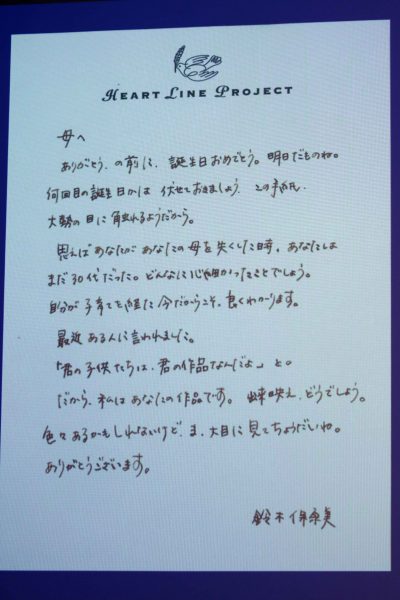 HEART LINE PROJECT
母へ
ありがとう、の前に、誕生日おめでとう。明日だものね。
何回目の誕生日かは 伏せておきましょう、この手紙、
大勢の目に触れるようだから。
思えばあなたがあなたの母を失くした時、あなたは
まだ30代だった。どんなに心細かったことでしょう。
自分が子育てを経た今だからこそ、良くわかります。
最近ある人に言われました。
「君の子供たちは、君の作品なんだよ」と。
だから、私はあなたの作品です。出来映え、どうでしょう。
色々あるかもしれないけど、ま、大目に見てちょうだいね。
ありがとうございます。
鈴木保奈美